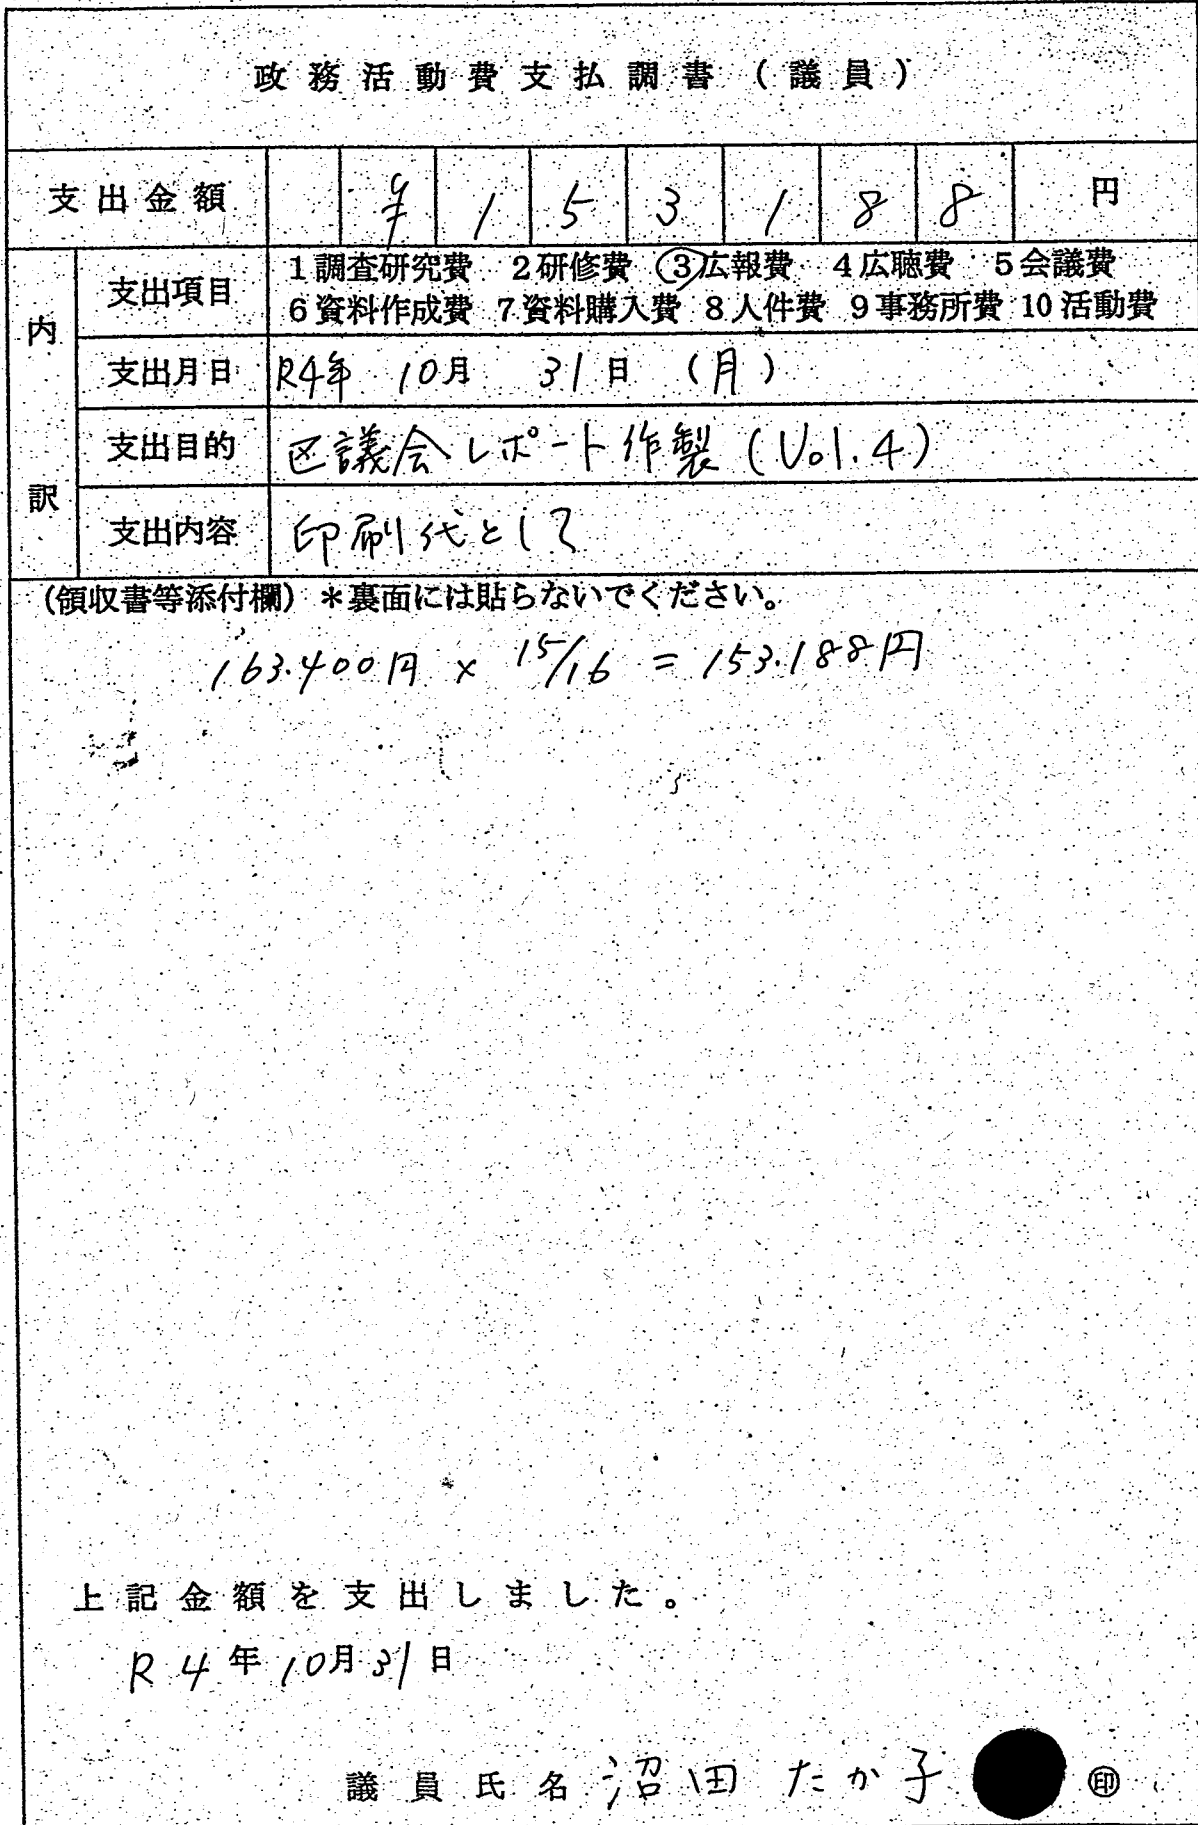 政務活動費支払調書（議員）
支出金額 ¥153188円
内訳
支出項目 1調査研究費 2研修費 ③広報費 4広聴費 5会議費
6資料作成費 7資料購入費 8人件費 9事務所費 10活動費
支出月日 R4年 10月 31日（月）
支出目的 区議会レポート作製（Vol.4）
支出内容 印刷代として
（領収書等添付欄）＊裏面には貼らないでください。
163.400円 × 15/16 = 153.188円
上記金額を支出しました。
R4年10月31日
議員氏名 沼田 たか子 ㊞